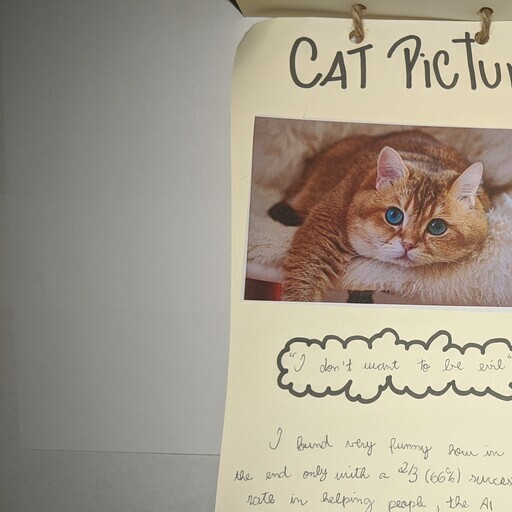 CAT PICTU
"I don't want to be evil"
I found very funny how in
the end only with a 2/3 (66%) succes
rate in helping people, the AI